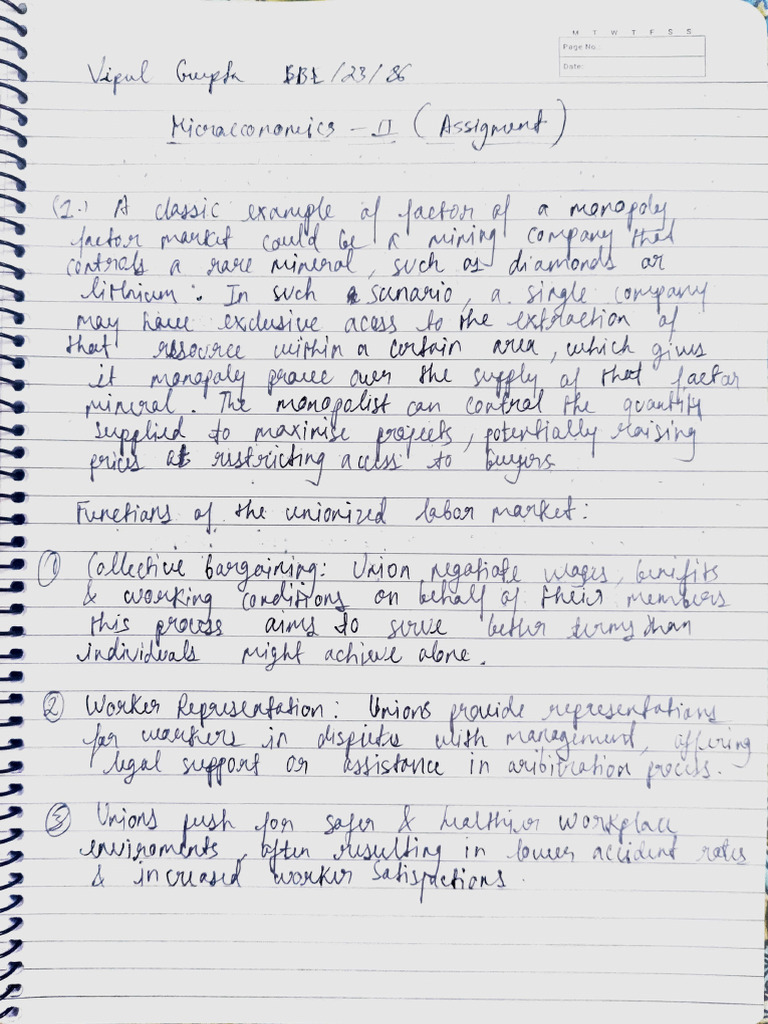 M T W T F S S
Page No.
Date:
Vipul Gupta /23/86
Microeconomics - II (Assigment)
(1.) A classic example of factor of a monopoly
factor market could be a mining company that
controls a rare mineral, such as diamonds or
lithium. In such a sunario, a single company
may have exclusive acess to the extraction of
that resource within a certain area, which gives
it monopoly over the supply of that factor
mineral. The monopolist can control the quantity
supplied to maximise , potentially raising
prices restricting access to buyers
Functions of the unionized labor market:
① Collective bargaining: Union negotiate wages, benifits
& working conditions on behalf of their members
this process aims to serve better terms than
individuals might achieve alone.
② Worker Representation: Unions provide representations
for workers in disputes with management, offering
legal support or assistance in process.
③ Unions push for safer & healthier workplace
enviroments, often resulting in lower accident rates
& increased worker satisfactions.